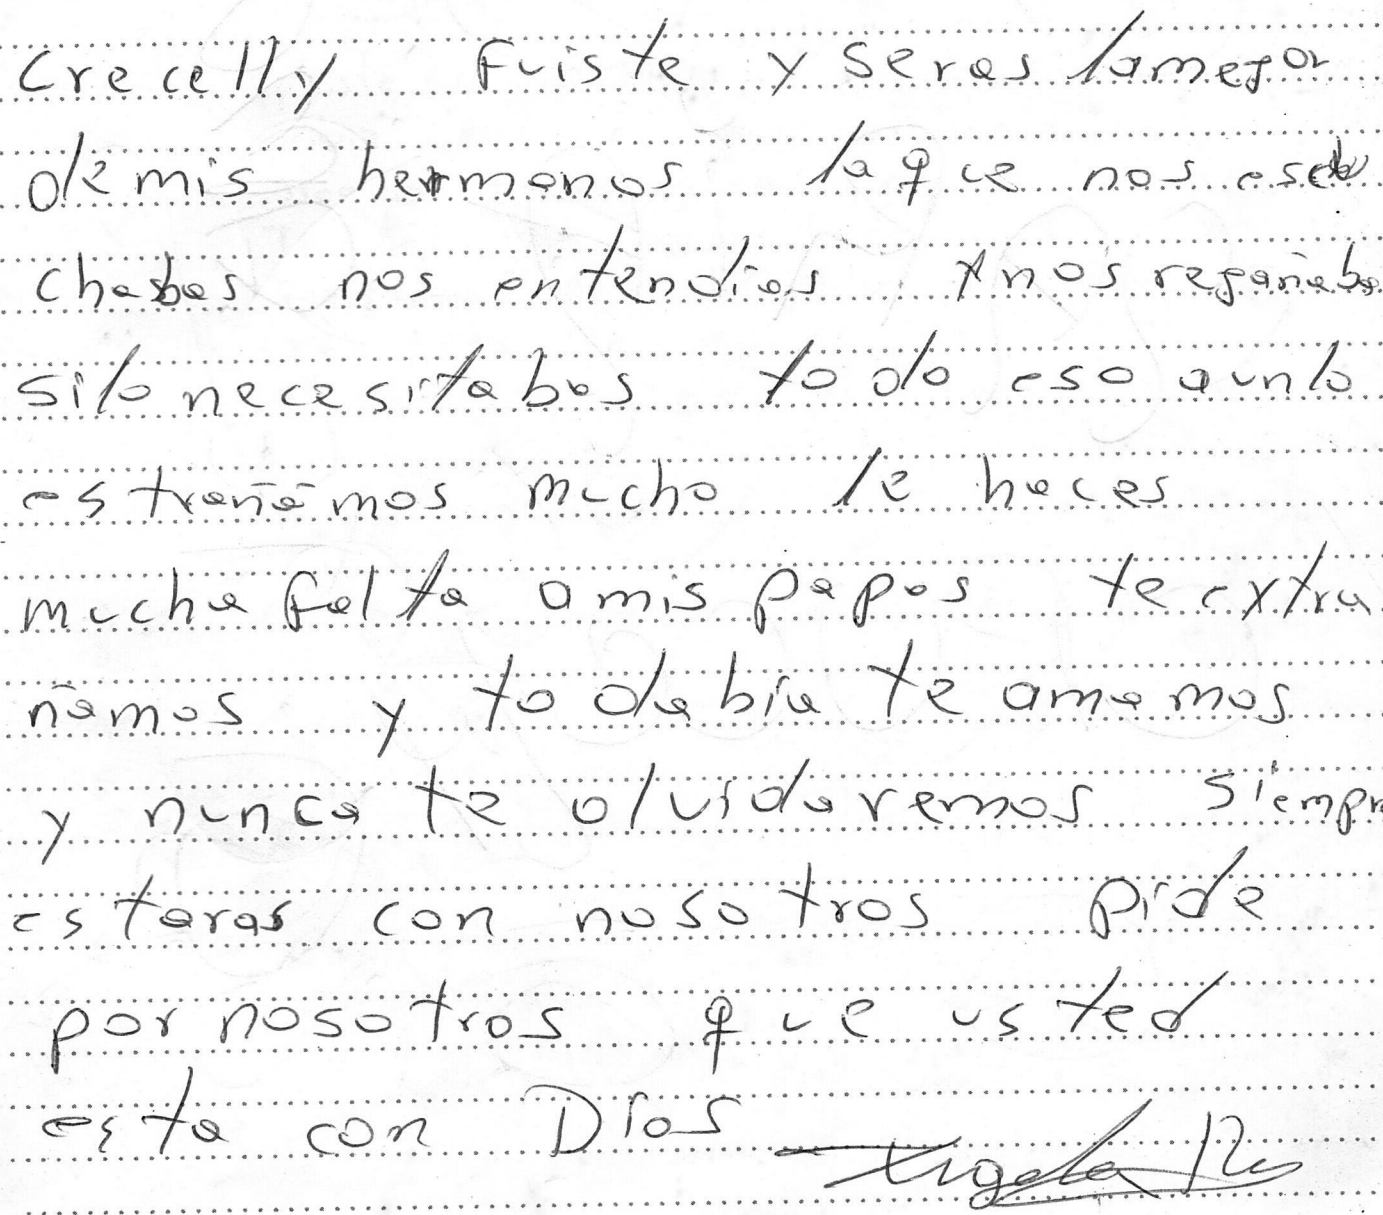 Crecelly Fuiste y Seras la mejor
de mis hermanos la que nos escu
chabas nos entendias y nos regañabas
si lo necesitabas todo eso aun lo
estrañamos mucho le haces
mucha falta a mis papas te extra
ñamos y todabia te amamos
y nunca te olvidaremos Siempre
estaras con nosotros pide
por nosotros que usted
esta con Dios